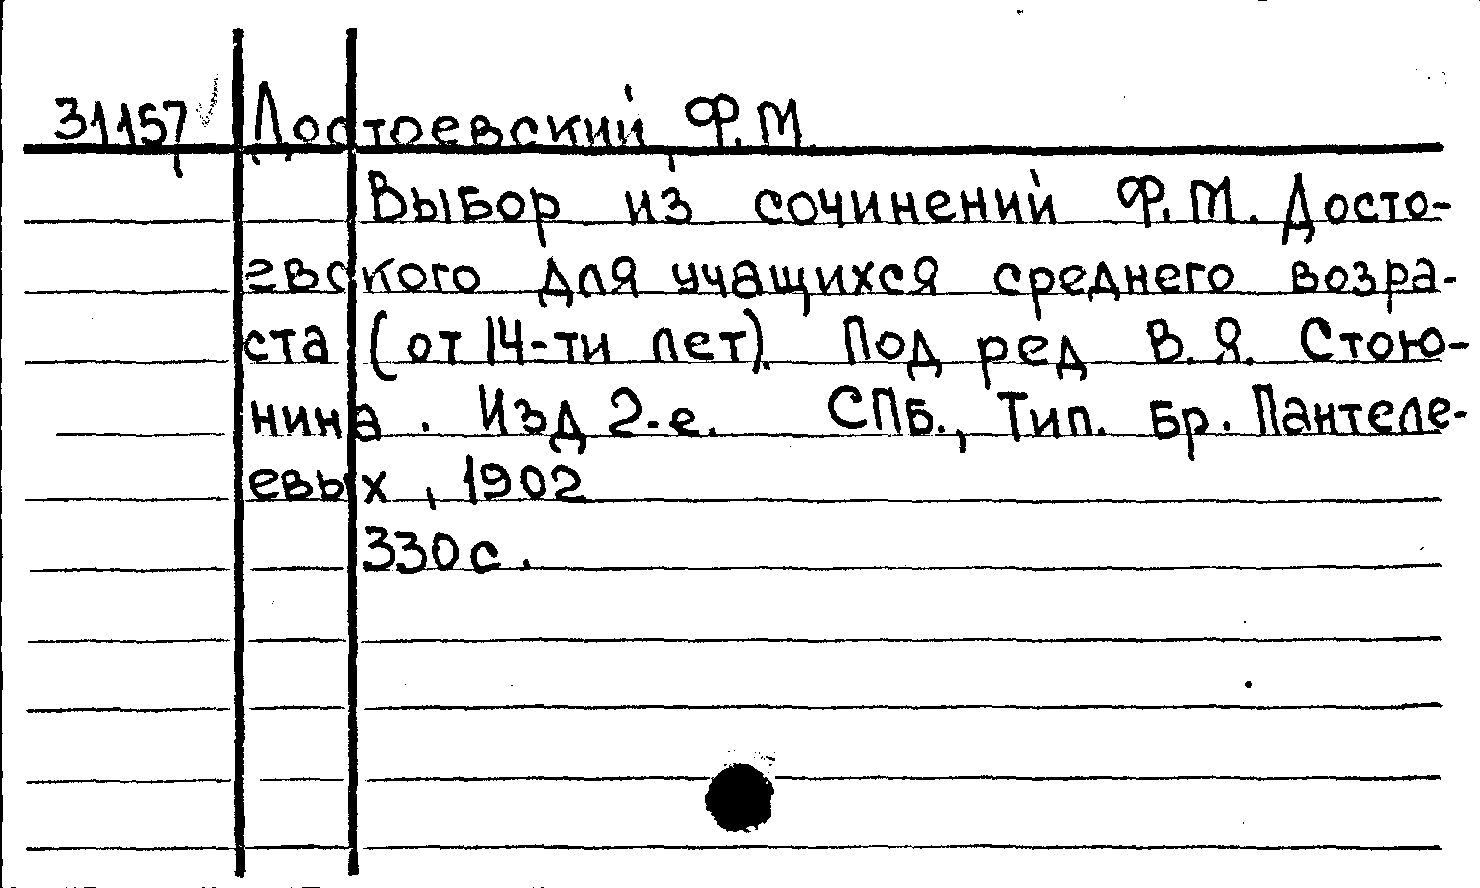 31157 Достоевский, Ф.М.
Выбор из сочинений Ф.М. Досто-
евского для учащихся среднего возра-
ста (от 14-ти лет). Под ред В.Я. Стою-
нина. Изд 2-е. СПБ., Тип. бр. Пантеле-
евых, 1902
330с.